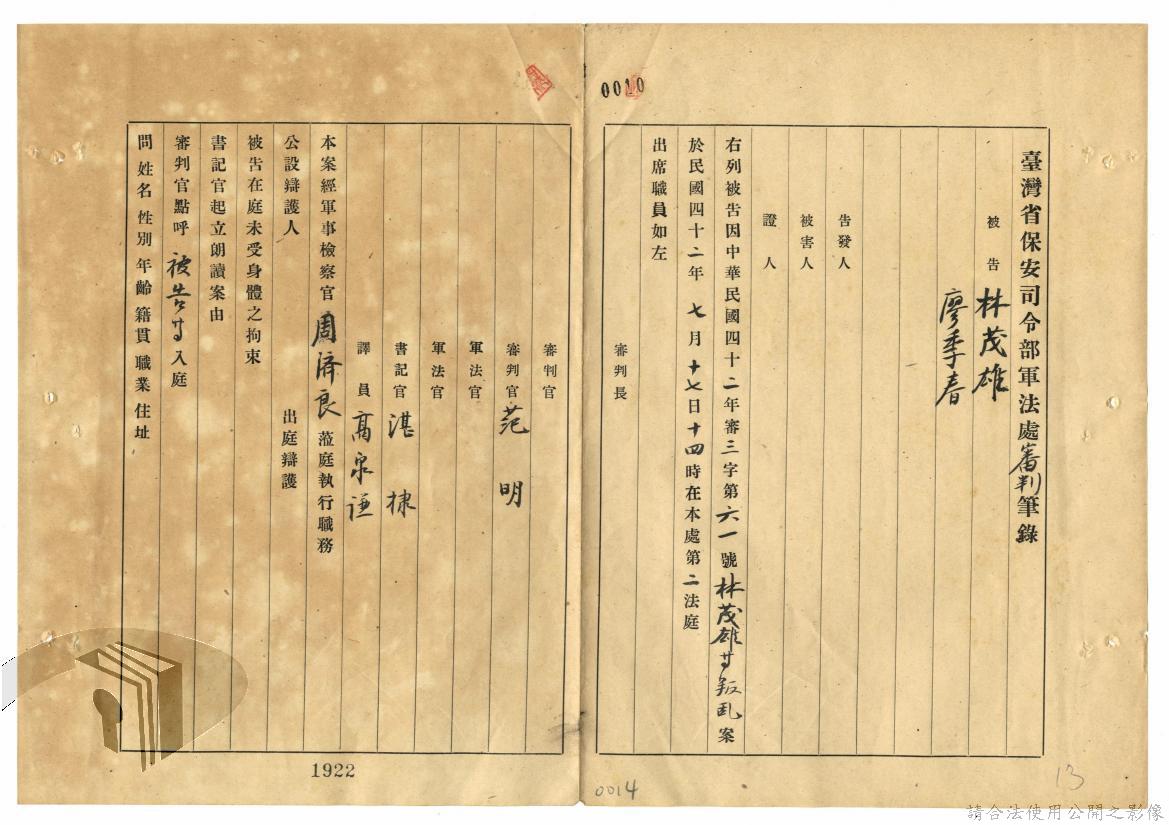 0010
臺灣省保安司令部軍法處審判筆錄
被告 林茂雄
廖季春
告發人
被害人
證人
右列被告因中華民國四十二年審三字第六一號林茂雄等叛乱案
於民國四十二年七月十七日十四時在本處第二法庭
出席職員如左
審判長
審判官
審判官 范明
軍法官
軍法官
書記官 湛棣
譯員 高泉謹
本案經軍事檢察官周濟良蒞庭執行職務
公設辯護人 出庭辯護
被告在庭未受身體之拘束
書記官起立朗讀案由
審判官點呼被告等入庭
問 姓名 性別 年齡 籍貫 職業 住址
1922
0014
13
請合法使用公開之影像